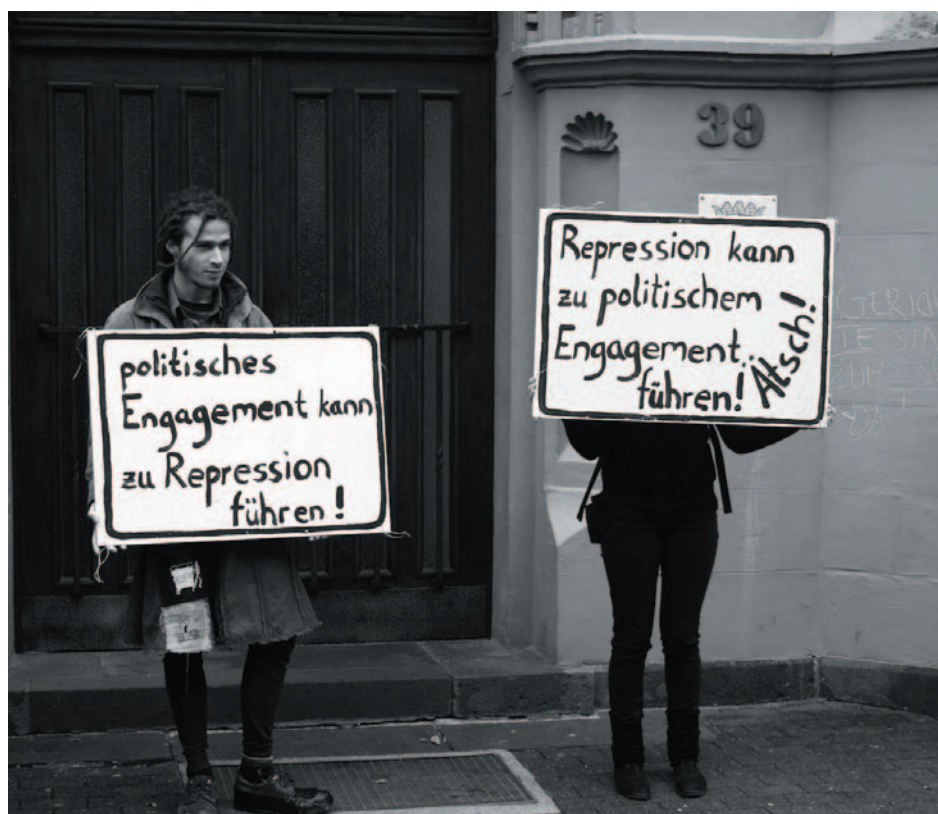 39
politisches
Engagement kann
zu Repression
führen!
Repression kann
zu politischem
Engagement
führen! Ätsch!